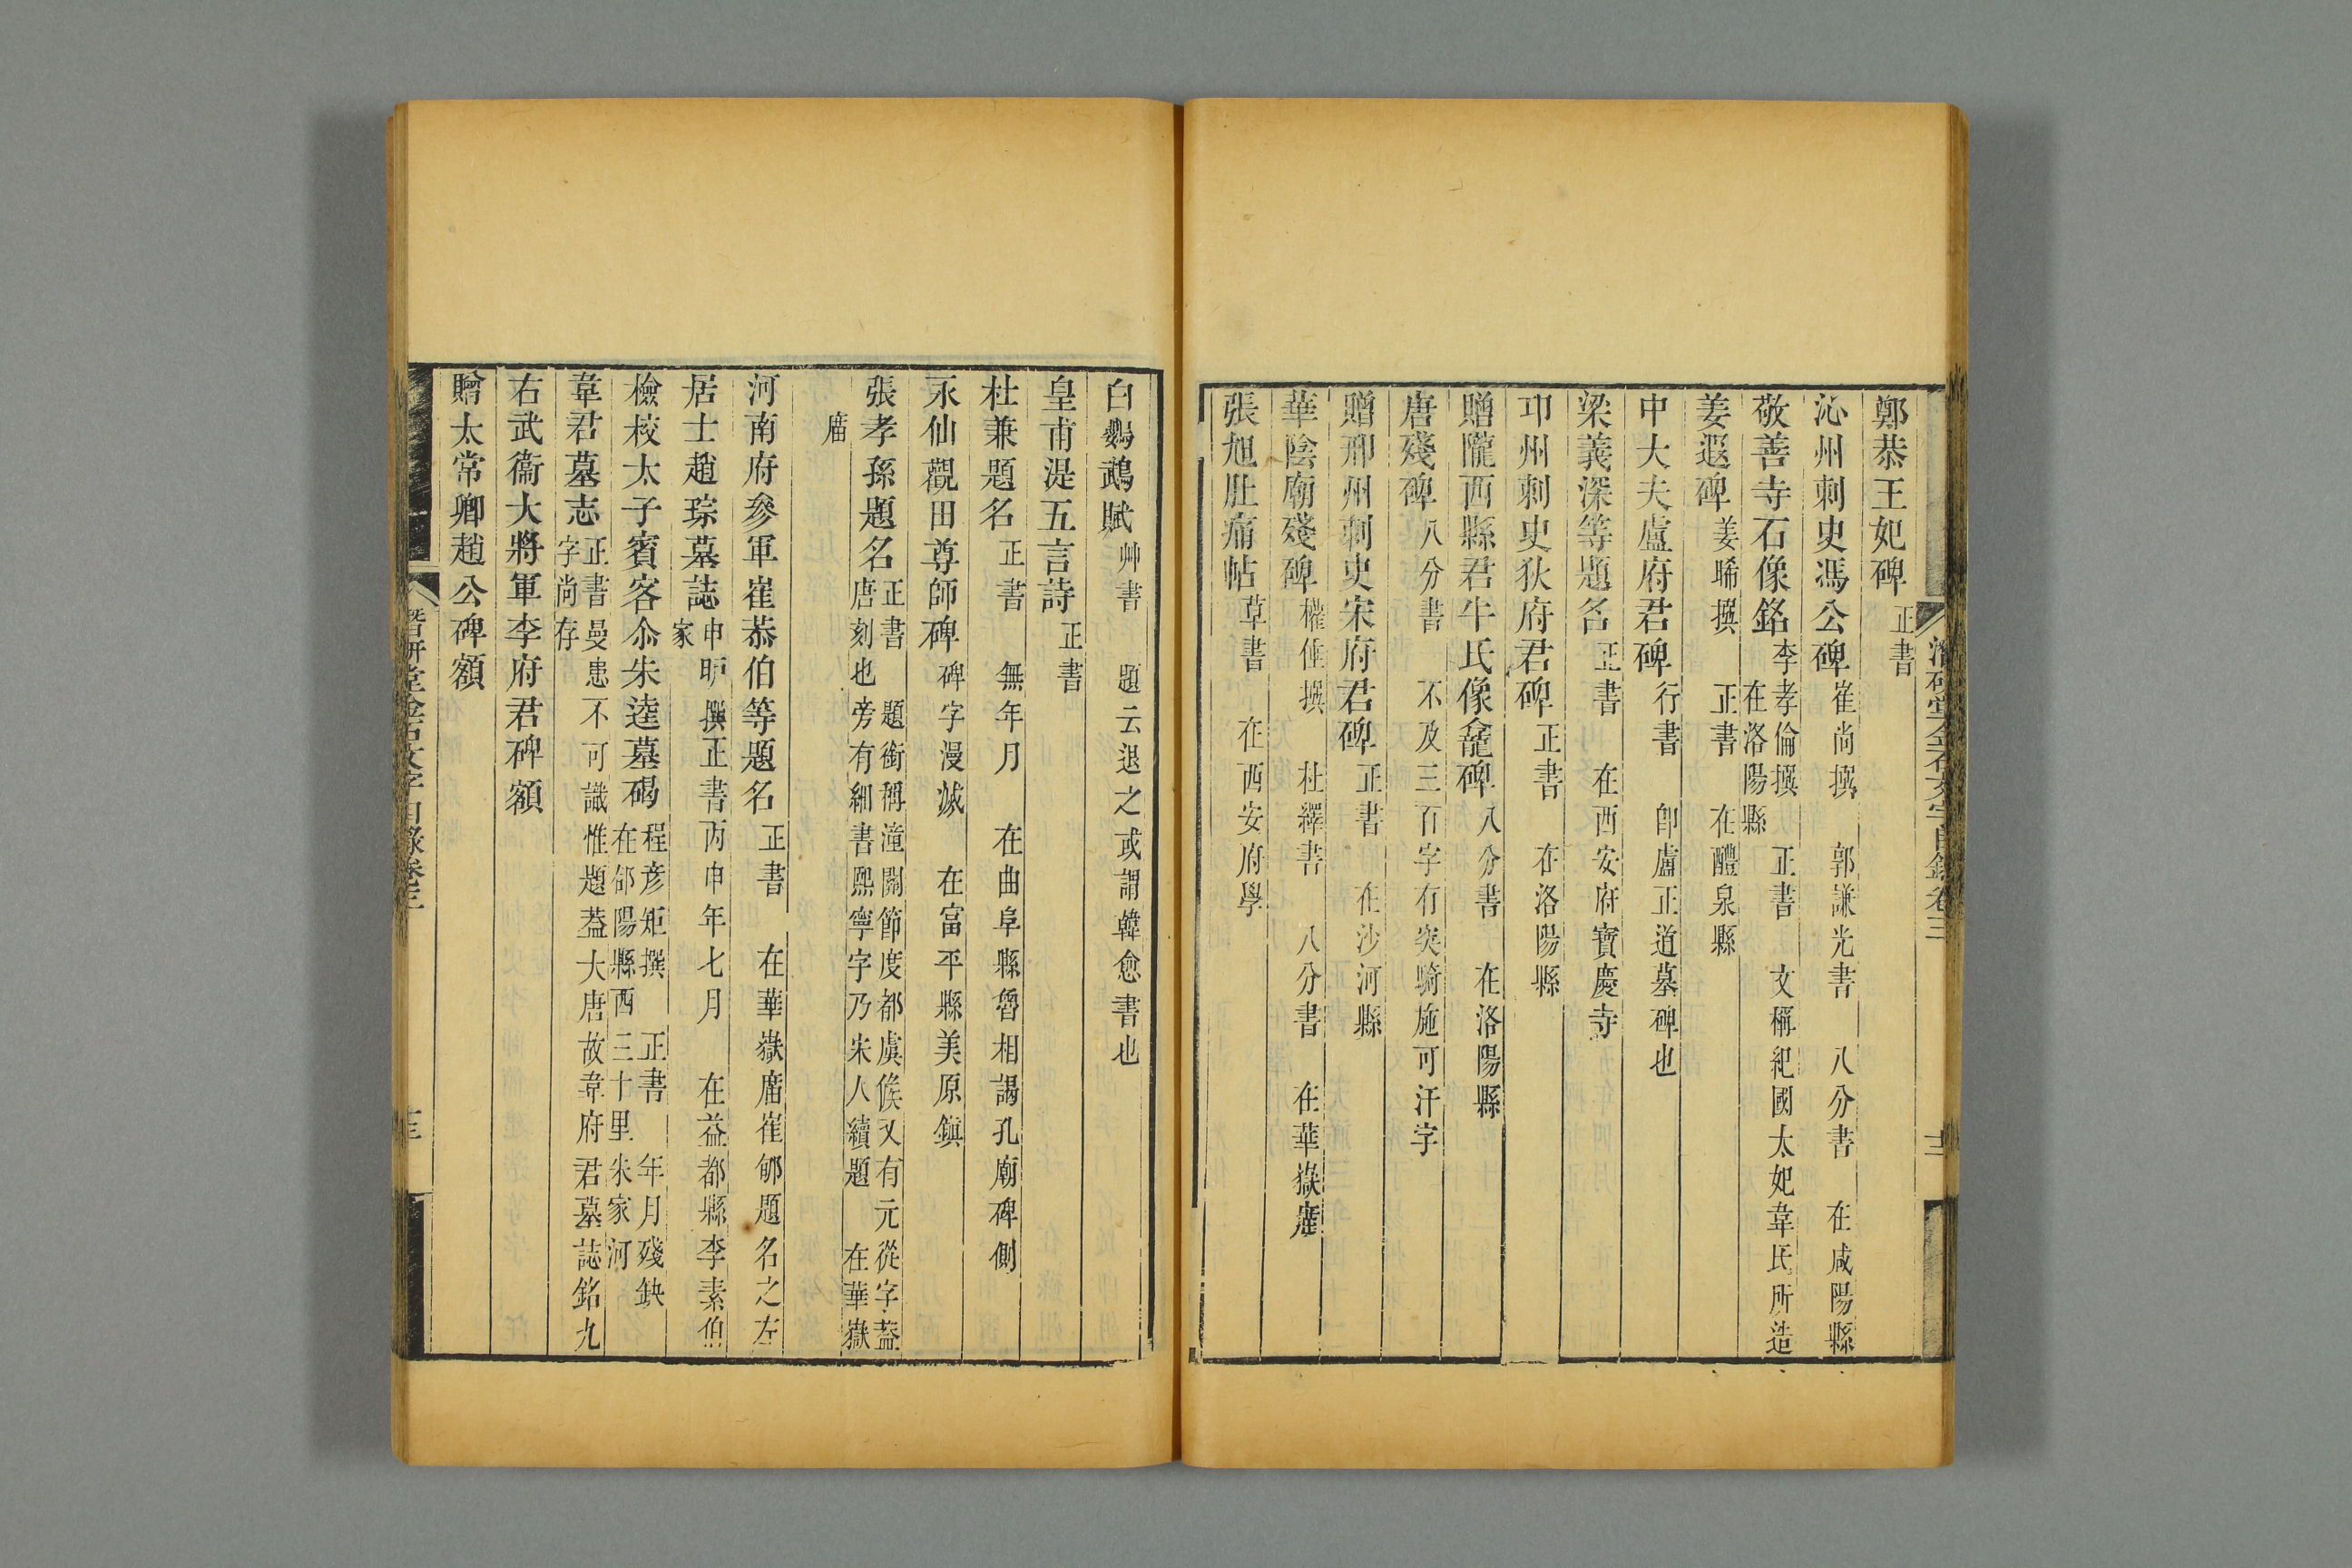 鄭恭王妃碑 正書
沁州刺史馮公碑 崔尚撰 郭謙光書 八分書 在咸陽縣
敬善寺石像銘 李孝倫撰 正書 文稱紀國太妃韋氏所造
在洛陽縣
姜遐碑 姜晞撰 正書 在醴泉縣
中大夫盧府君碑 行書 卽盧正道墓碑也
梁義深等題名 正書 在西安府寶慶寺
卭州刺史狄府君碑 正書 在洛陽縣
贈隴西縣君牛氏像龕碑 八分書 在洛陽縣
唐殘碑 八分書 不及三百字有突騎施可汗字
贈邢州刺史宋府君碑 正書 在沙河縣
華陰廟殘碑 權倕撰 杜繹書 八分書 在華嶽廟
張旭肚痛帖 草書 在西安府學
潛研堂金石文字目錄卷三
十二
白鸚鵡賦 艸書 題云退之或謂韓愈書也
皇甫湜五言詩 正書
杜兼題名 正書 無年月 在曲阜縣魯相謁孔廟碑側
永仙觀田尊師碑 碑字漫滅 在富平縣美原鎮
張孝孫題名 正書 題銜稱潼關節度都虞候又有元從字葢
唐刻也旁有細書熙寧字乃宋人續題 在華嶽
廟
河南府參軍崔恭伯等題名 正書 在華嶽廟崔郇題名之左
居士趙琮墓誌 申旷撰正書丙申年七月 在益都縣李素伯
家
檢校太子賓客𠆳朱逵墓碣 程彥矩撰 正書 年月殘缺
在郃陽縣西三十里朱家河
韋君墓志 正書曼患不可識惟題葢大唐故韋府君墓誌銘九
字尚存
右武衞大將軍李府君碑額
贈太常卿趙公碑額
潛研堂金石文字目錄卷三
十三